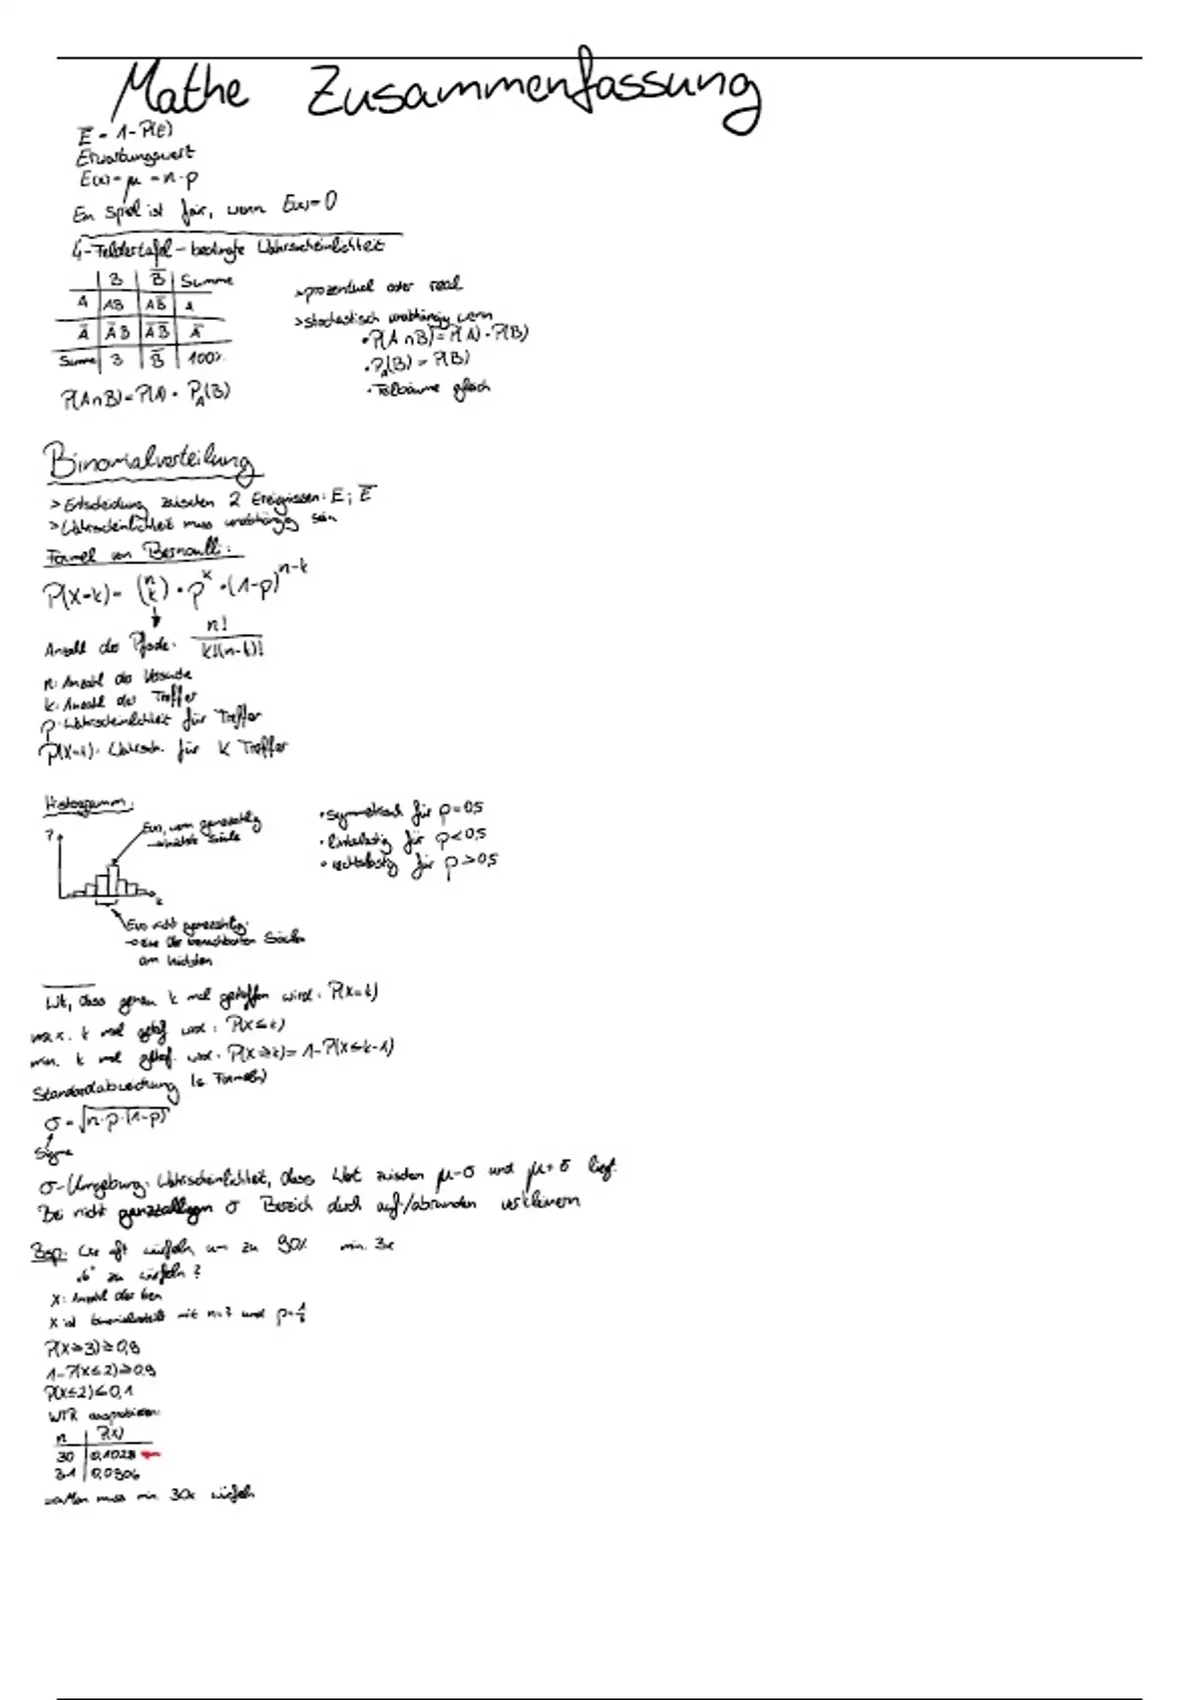 Mathe Zusammenfassung
Ē = 1-P(E)
Erwartungswert
E(x)=μ=n·p
Ein Spiel ist fair, wenn E(x)=0
4-Feldertafel-bedingte Wahrscheinlichkeit
B B̄ Summe
A AB AB̄ A
Ā ĀB ĀB̄ Ā
Summe B B̄ 100%
P(A∩B)=P(A)·P_A(B)
→prozentual oder real
>stochastisch unabhängig wenn
·P(A∩B)=P(A)·P(B)
·P_A(B)=P(B)
·Teilbäume gleich
Binomialverteilung
>Entscheidung zwischen 2 Ereignissen: E; Ē
>Wahrscheinlichkeit muss unabhängig sein
Formel von Bernoulli:
P(X=k)=(n k)·p^k·(1-p)^n-k
Anzahl der Pfade: n!/k!(n-k)!
n: Anzahl der Versuche
k: Anzahl der Treffer
p: Wahrscheinlichkeit für Treffer
P(X=k): Wahrsch. für k Treffer
Histogramm:
P
E(x), wenn ganzzahlig
→höchste Säule
k
E(x) nicht ganzzahlig:
→eine der benachbarten Säulen
am höchsten
·symmetrisch für p=0,5
·linkslastig für p<0,5
·rechtslastig für p>0,5
Wk, dass genau k mal getroffen wird: P(X=k)
max. k mal getrof. wird: P(X≤k)
min. k mal getrof. wird: P(X≥k)=1-P(X≤k-1)
Standardabweichung (s. Formeln)
σ=√n·p·(1-p)
Sigma
σ-Umgebung: Wahrscheinlichkeit, dass Wert zwischen μ-σ und μ+σ liegt
Bei nicht ganzzahligem σ Bereich durch auf-/abrunden verkleinern
Bsp: Wie oft würfeln um zu 90% min. 3x
„6" zu würfeln?
X: Anzahl der 6en
X ist binomialverteilt mit n=? und p=1/6
P(X≥3)≥0,9
1-P(X≤2)≥0,9
P(X≤2)≤0,1
WTR ausprobieren:
n P(X)
30 0,1028 ←
31 0,0906
→Man muss min 30x würfeln